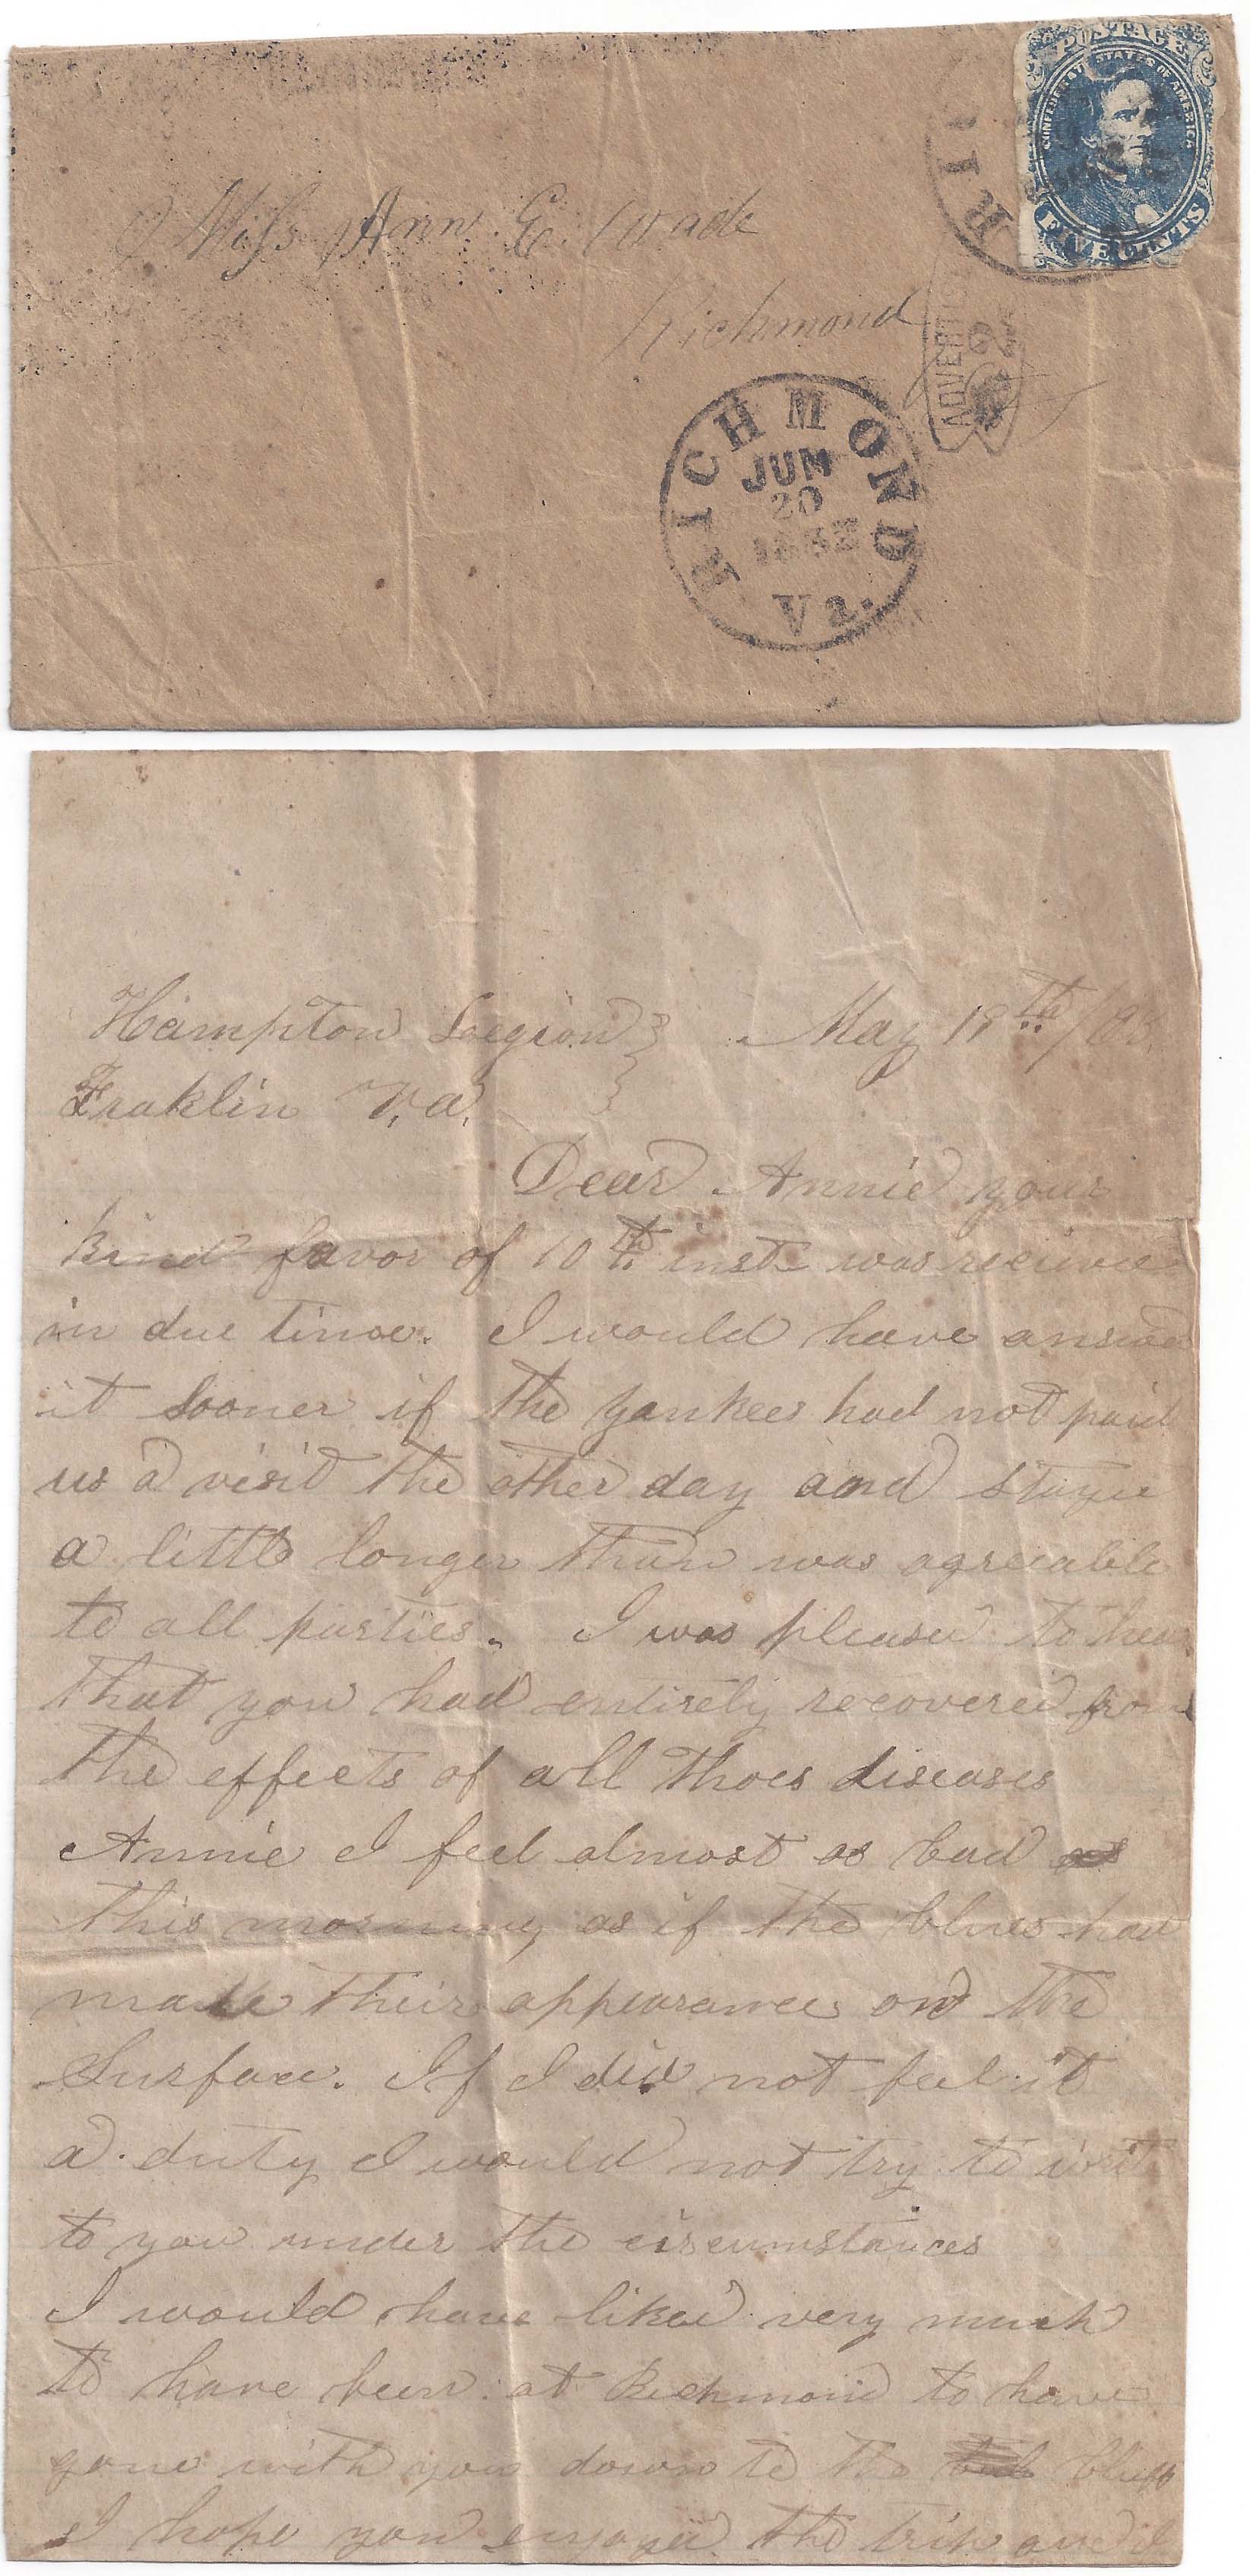 POSTAGE
CONFEDERATE STATES OF AMERICA
FIVE CENTS
RI
Miss Ann. E. Wade
Richmond
ADVERTIS
RICHMOND
JUN
20
1862
Va.
Hampton Legion } May 19th/63
Fraklin Va. }
Dear Annie your
kind favor of 10th inst was recieve
in due time. I would have answe
it sooner if the yankees had not paid
us a visit the other day and stayed
a little longer than was agreeable
to all parties. I was pleased to hear
that you had entirely recovered from
the effects of all thoes diseases
Annie I feel almost as bad as
this morning as if the blues had
made their appearance on the
Surface. If I did not feel it
a duty I would not try to write
to you under the circumstances
I would have liked very much
to have been at Richmond to have
gone with you down to the bluff
I hope you enjoyed the trip and